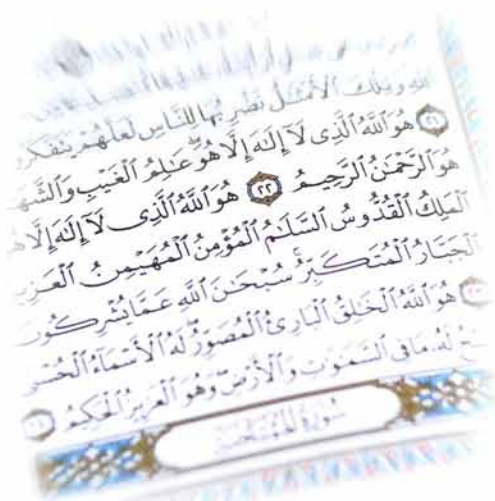 ٱللَّهِ وَتِلْكَ ٱلْأَمْثَٰلُ نَضْرِبُهَا لِلنَّاسِ لَعَلَّهُمْ يَتَفَكَّرُو
٢١ هُوَ ٱللَّهُ ٱلَّذِى لَآ إِلَٰهَ إِلَّا هُوَ ۖ عَٰلِمُ ٱلْغَيْبِ وَٱلشَّهَ
هُوَ ٱلرَّحْمَٰنُ ٱلرَّحِيمُ ٢٢ هُوَ ٱللَّهُ ٱلَّذِى لَآ إِلَٰهَ إِلَّا هُ
ٱلْمَلِكُ ٱلْقُدُّوسُ ٱلسَّلَٰمُ ٱلْمُؤْمِنُ ٱلْمُهَيْمِنُ ٱلْعَزِي
ٱلْجَبَّارُ ٱلْمُتَكَبِّرُ ۚ سُبْحَٰنَ ٱللَّهِ عَمَّا يُشْرِكُونَ
٢٣ هُوَ ٱللَّهُ ٱلْخَٰلِقُ ٱلْبَارِئُ ٱلْمُصَوِّرُ ۖ لَهُ ٱلْأَسْمَآءُ ٱلْحُسْنَ
لَهُۥ مَا فِى ٱلسَّمَٰوَٰتِ وَٱلْأَرْضِ ۖ وَهُوَ ٱلْعَزِيزُ ٱلْحَكِيمُ ٢٤
سُورَةُ ٱلْمُمْتَحَنَةِ